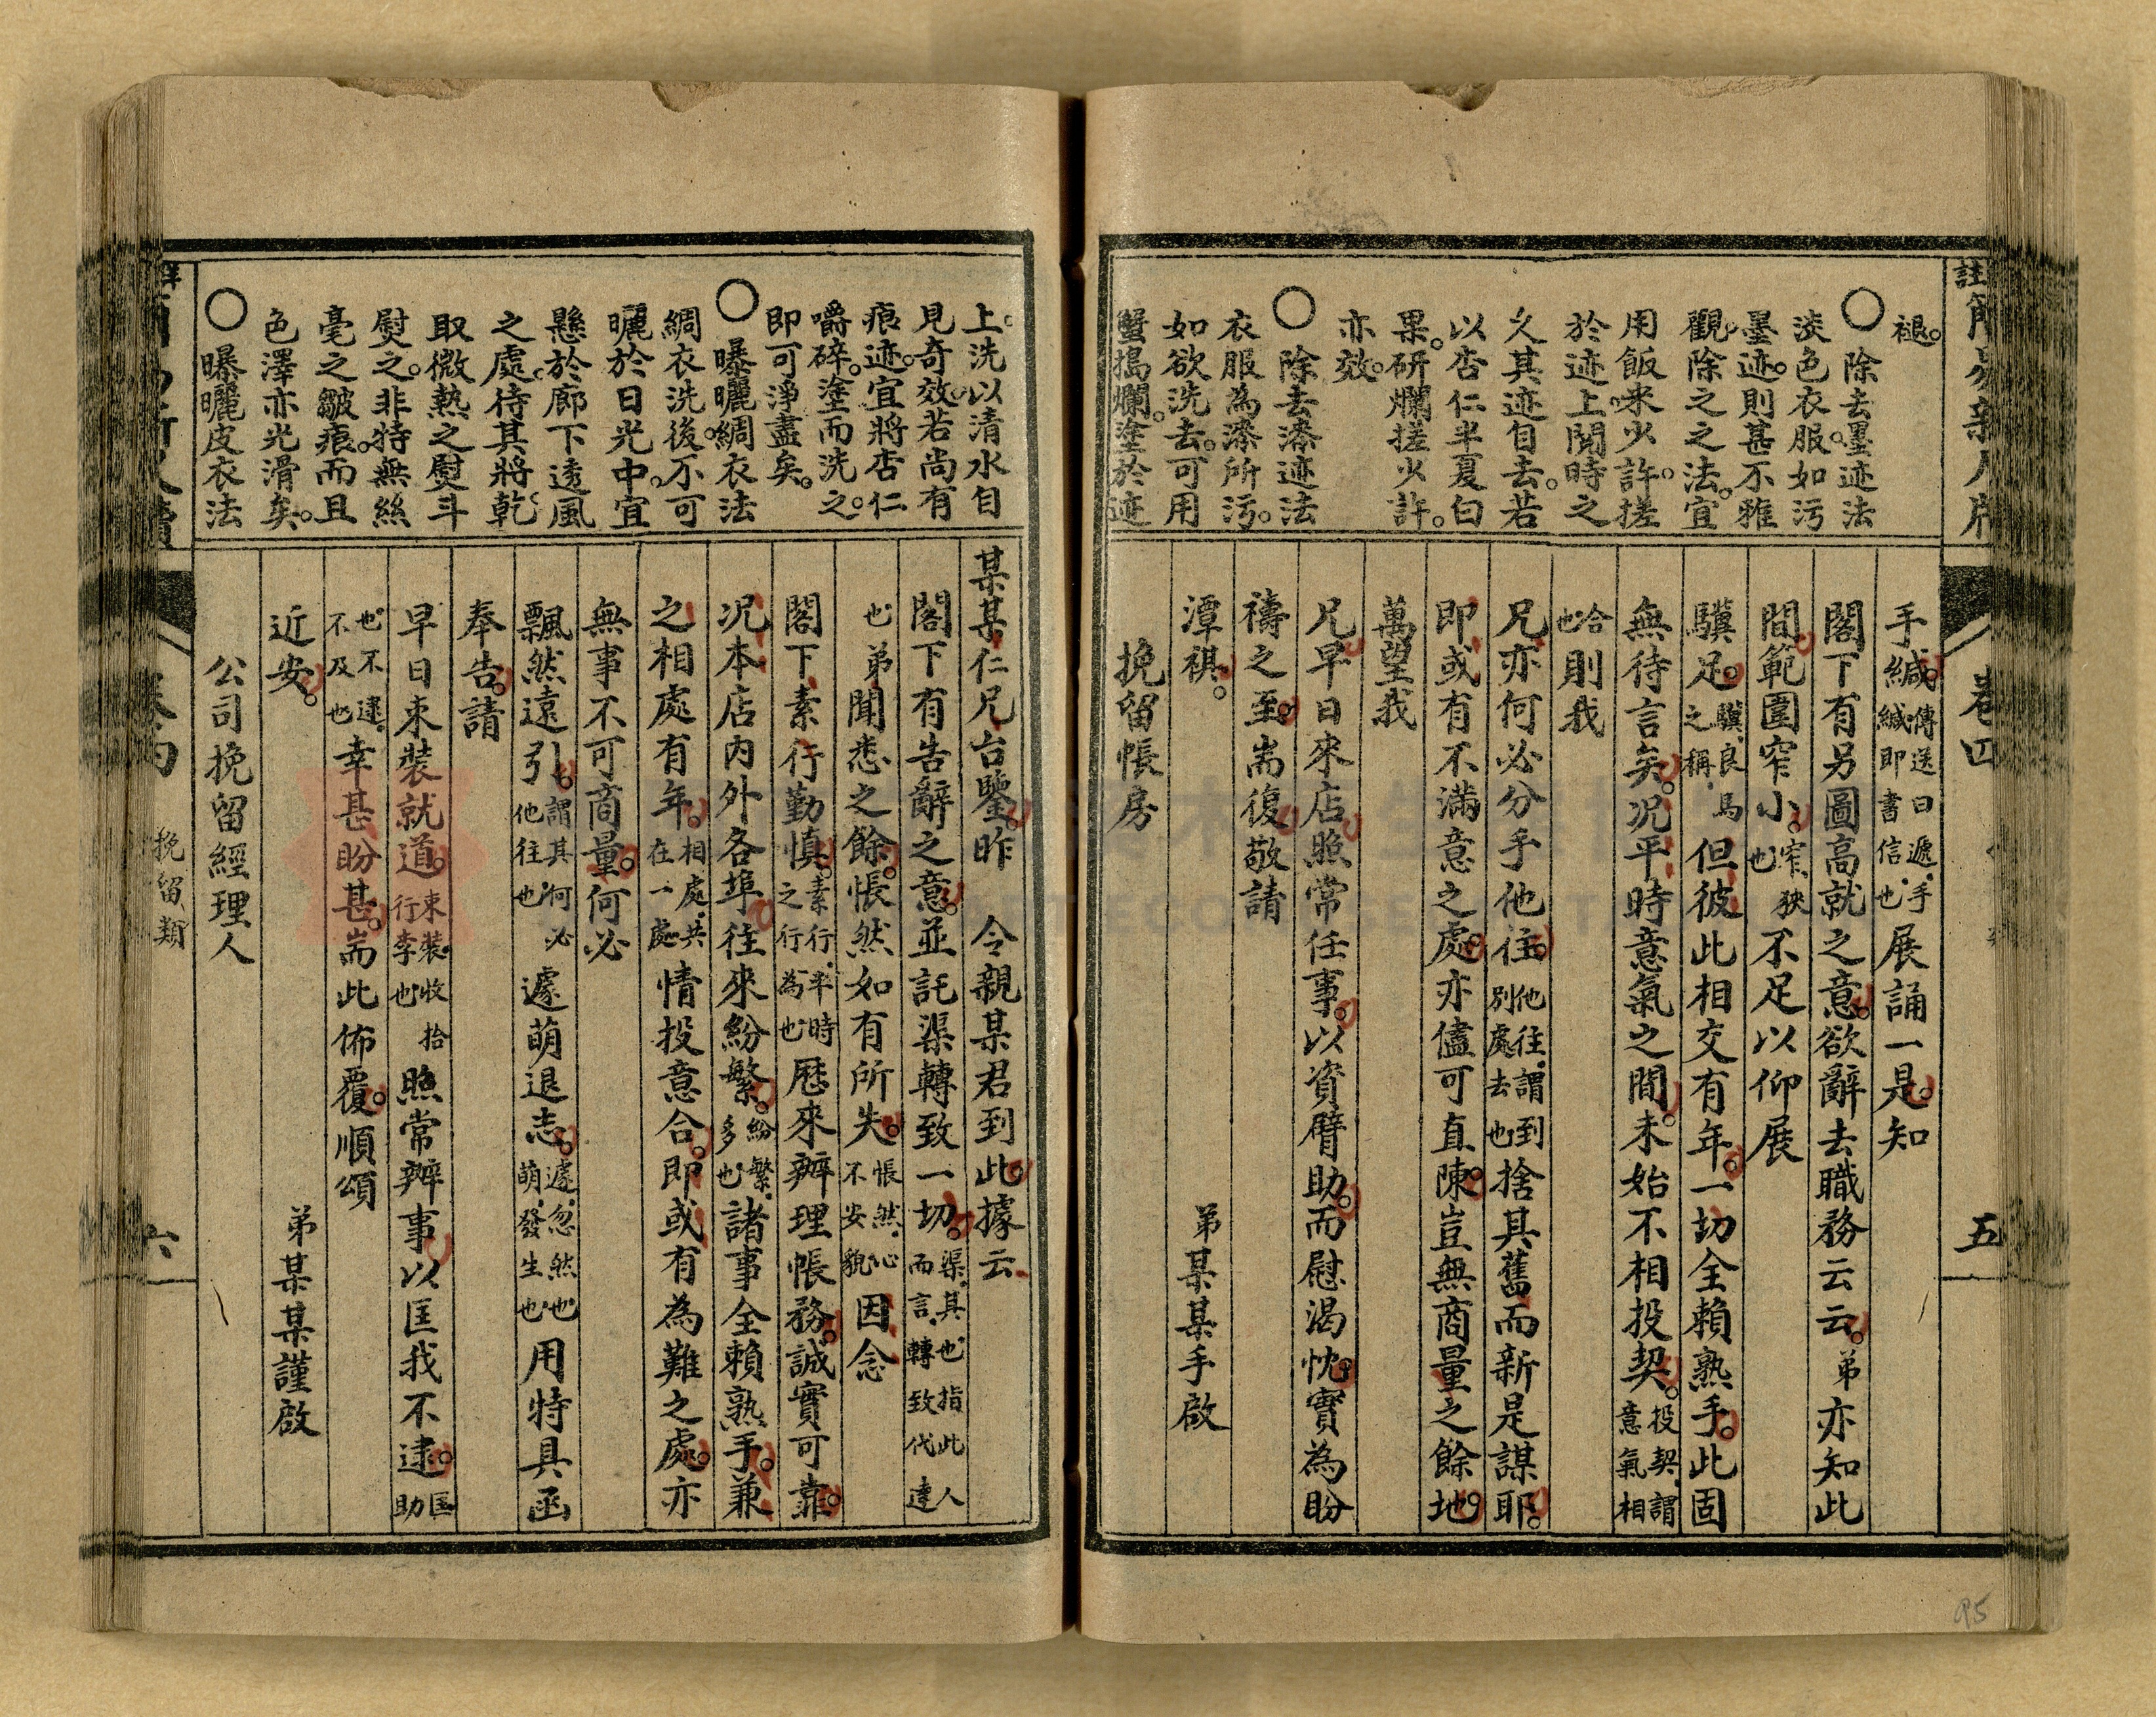 褪。
○除去墨迹法
淡色衣服。如污
墨迹。則甚不雅
觀。除之之法。宜
用飯米少許。搓
於迹上。閱時之
久。其迹自去。若
以杏仁半夏白
果。研爛搓少許。
亦效。
○除去漆迹法
衣服為漆所污。
如欲洗去。可用
蟹搗爛。塗於迹
手緘。傳送曰遞。手緘即書信也。展誦一是。知
閣下有另圖高就之意。欲辭去職務云云。弟亦知此
間範圍窄小。窄、狹也。不足以仰展
驥足。驥、良馬之稱。但彼此相交有年。一切全賴熟手。此固
無待言矣。况平時意氣之間。未始不相投契。投契、謂意氣相
合也。則我
兄亦何必分手他往。他往、謂到別處去也。捨其舊而新是謀耶。
即或有不滿意之處。亦儘可直陳。豈無商量之餘地。
萬望我
兄早日來店。照常任事。以資臂助。而慰渴忱。實為盼
禱之至。耑復敬請
潭祺。
弟某某手啟
挽留帳房
卷四
五
95
上。洗以清水。自
見奇效。若尚有
痕迹。宜將杏仁
嚼碎。塗而洗之。
即可淨盡矣。
○曝曬綢衣法
綢衣洗後。不可
曬於日光中。宜
懸於廊下透風
之處。待其將乾。
取微熱之熨斗
熨之。非特無絲
毫之皺痕。而且
色澤亦光滑矣。
○曝曬皮衣法
某某仁兄台鑒。昨 令親某君到此。據云
閣下有告辭之意。並託渠轉致一切。渠、其也、指此人而言、轉致代達
也。弟聞悉之餘。悵然如有所失。悵然、心不安貌因念
閣下素行勤慎。素行、平時之行為也。歷來辦理帳務。誠實可靠。
况本店內外各埠。往來紛繁。紛繁、多也。諸事全賴熟手。兼
之相處有年。相處、共在一處。情投意合。即或有為難之處。亦
無事不可商量。何必
飄然遠引。謂其何必他往也。遽萌退志。遽、忽然也、萌、發生也。用特具函
奉告。請
早日束裝就道。束裝、收拾行李也。照常辦事。以匡我不逮。匡助
也。不逮、不及也。幸甚盼甚。耑此佈覆。順頌
近安。
弟某某謹啟
公司挽留經理人
挽留類
六